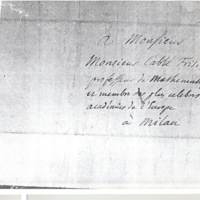 A Monsieur
Monsieur l'abbé Frisi
professeur de Mathemati
et membre des plus celebres
académies de l'Europe
à Milan